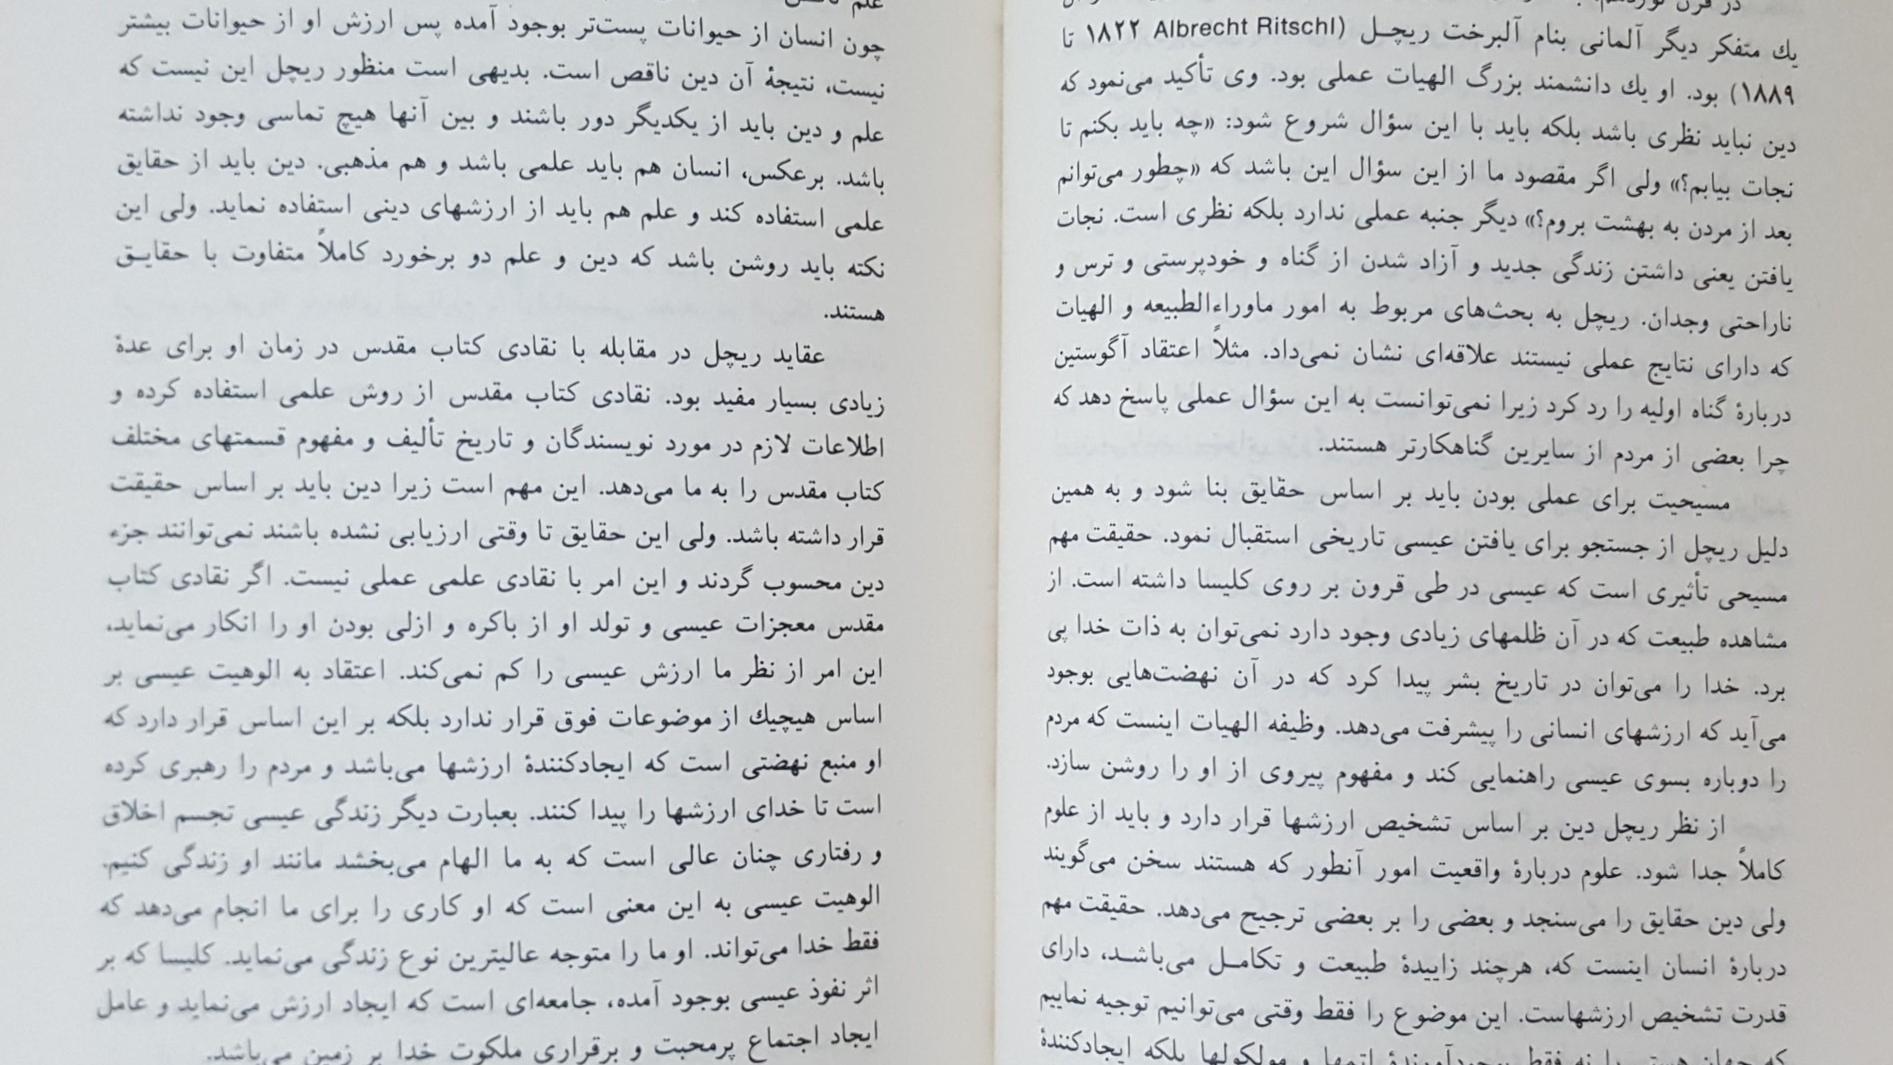 در قرن نوزدهم،
یك متفکر دیگر آلمانی بنام آلبرخت ریچـل (Albrecht Ritschl ۱۸۲۲ تا
۱۸۸۹) بود. او یك دانشمند بزرگ الهیات عملی بود. وی تأکید می‌نمود که
دین نباید نظری باشد بلکه باید با این سؤال شروع شود: «چه باید بکنم تا
نجات بیابم؟» ولی اگر مقصود ما از این سؤال این باشد که «چطور می‌توانم
بعد از مردن به بهشت بروم؟» دیگر جنبه عملی ندارد بلکه نظری است. نجات
یافتن یعنی داشتن زندگی جدید و آزاد شدن از گناه و خودپرستی و ترس و
ناراحتی وجدان. ریچل به بحث‌های مربوط به امور ماوراءالطبیعه و الهیات
که دارای نتایج عملی نیستند علاقه‌ای نشان نمی‌داد. مثلاً اعتقاد آگوستین
دربارهٔ گناه اولیه را رد کرد زیرا نمی‌توانست به این سؤال عملی پاسخ دهد که
چرا بعضی از مردم از سایرین گناهکارتر هستند.
مسیحیت برای عملی بودن باید بر اساس حقایق بنا شود و به همین
دلیل ریچل از جستجو برای یافتن عیسی تاریخی استقبال نمود. حقیقت مهم
مسیحی تأثیری است که عیسی در طی قرون بر روی کلیسا داشته است. از
مشاهده طبیعت که در آن ظلمهای زیادی وجود دارد نمی‌توان به ذات خدا پی
برد. خدا را می‌توان در تاریخ بشر پیدا کرد که در آن نهضت‌هایی بوجود
می‌آید که ارزشهای انسانی را پیشرفت می‌دهد. وظیفه الهیات اینست که مردم
را دوباره بسوی عیسی راهنمایی کند و مفهوم پیروی از او را روشن سازد.
از نظر ریچل دین بر اساس تشخیص ارزشها قرار دارد و باید از علوم
کاملاً جدا شود. علوم دربارهٔ واقعیت امور آنطور که هستند سخن می‌گویند
ولی دین حقایق را می‌سنجد و بعضی را بر بعضی ترجیح می‌دهد. حقیقت مهم
دربارهٔ انسان اینست که، هرچند زاییدهٔ طبیعت و تکامـل می‌باشـد، دارای
قدرت تشخیص ارزشهاست. این موضوع را فقط وقتی می‌توانیم توجیه نماییم
که جهان هستی را نه فقط بوجودآورندهٔ اتمها و مولکولها بلکه ایجادکنندهٔ
علم
چون انسان از حیوانات پست‌تر بوجود آمده پس ارزش او از حیوانات بیشتر
نیست، نتیجهٔ آن دین ناقص است. بدیهی است منظور ریچل این نیست که
علم و دین باید از یکدیگر دور باشند و بین آنها هیچ تماسی وجود نداشته
باشد. برعکس، انسان هم باید علمی باشد و هم مذهبی. دین باید از حقایق
علمی استفاده کند و علم هم باید از ارزشهای دینی استفاده نماید. ولی این
نکته باید روشن باشد که دین و علم دو برخورد کاملاً متفاوت با حقایـق
هستند.
عقاید ریچل در مقابله با نقادی کتاب مقدس در زمان او برای عدهٔ
زیادی بسیار مفید بود. نقادی کتاب مقدس از روش علمی استفاده کرده و
اطلاعات لازم در مورد نویسندگان و تاریخ تألیف و مفهوم قسمتهای مختلف
کتاب مقدس را به ما می‌دهد. این مهم است زیرا دین باید بر اساس حقیقت
قرار داشته باشد. ولی این حقایق تا وقتی ارزیابی نشده باشند نمی‌توانند جزء
دین محسوب گردند و این امر با نقادی علمی عملی نیست. اگر نقادی کتاب
مقدس معجزات عیسی و تولد او از باکره و ازلی بودن او را انکار می‌نماید،
این امر از نظر ما ارزش عیسی را کم نمی‌کند. اعتقاد به الوهیت عیسی بر
اساس هیچیك از موضوعات فوق قرار ندارد بلکه بر این اساس قرار دارد که
او منبع نهضتی است که ایجادکنندهٔ ارزشها می‌باشد و مردم را رهبری کرده
است تا خدای ارزشها را پیدا کنند. بعبارت دیگر زندگی عیسی تجسم اخلاق
و رفتاری چنان عالی است که به ما الهام می‌بخشد مانند او زندگی کنیم.
الوهیت عیسی به این معنی است که او کاری را برای ما انجام می‌دهد که
فقط خدا می‌تواند. او ما را متوجه عالیترین نوع زندگی می‌نماید. کلیسا که بر
اثر نفوذ عیسی بوجود آمده، جامعه‌ای است که ایجاد ارزش می‌نماید و عامل
ایجاد اجتماع پرمحبت و برقراری ملکوت خدا بر زمین می‌باشد.